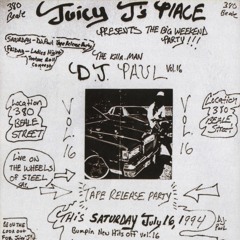 380
Beale
Juicy J's PlACE
380
Beale
PRESENTS THE BIG WEEKEND
PARTY!!!
SATURDAY - DJ Paul Tape Release Party
FRIDAY - Ladies Night
THE KILLA MAN
DJ PAUL Vol. 16
Location
380
BEALE
STREET
VOL
16
VOL
16
Location
380
BEALE
STREET
LIVE ON
THE WHEELS
OF STEEL
TAPE RELEASE PARTY
THIS SATURDAY July 16, 1994
Bumpin New Hits off vol. 16
BE ON THE
LOOK OUT
FOR Juicy J's
DJ
Paul